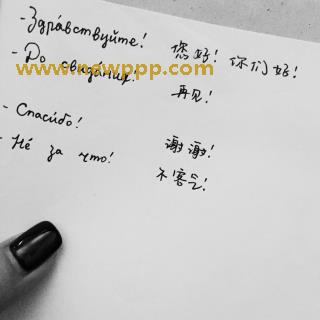 - Здра́вствуйте! 您好! 你们好!
- До свида́ния! 再见!
www.newppp.com
- Спаси́бо! 谢谢!
- Не́ за что! 不客气!